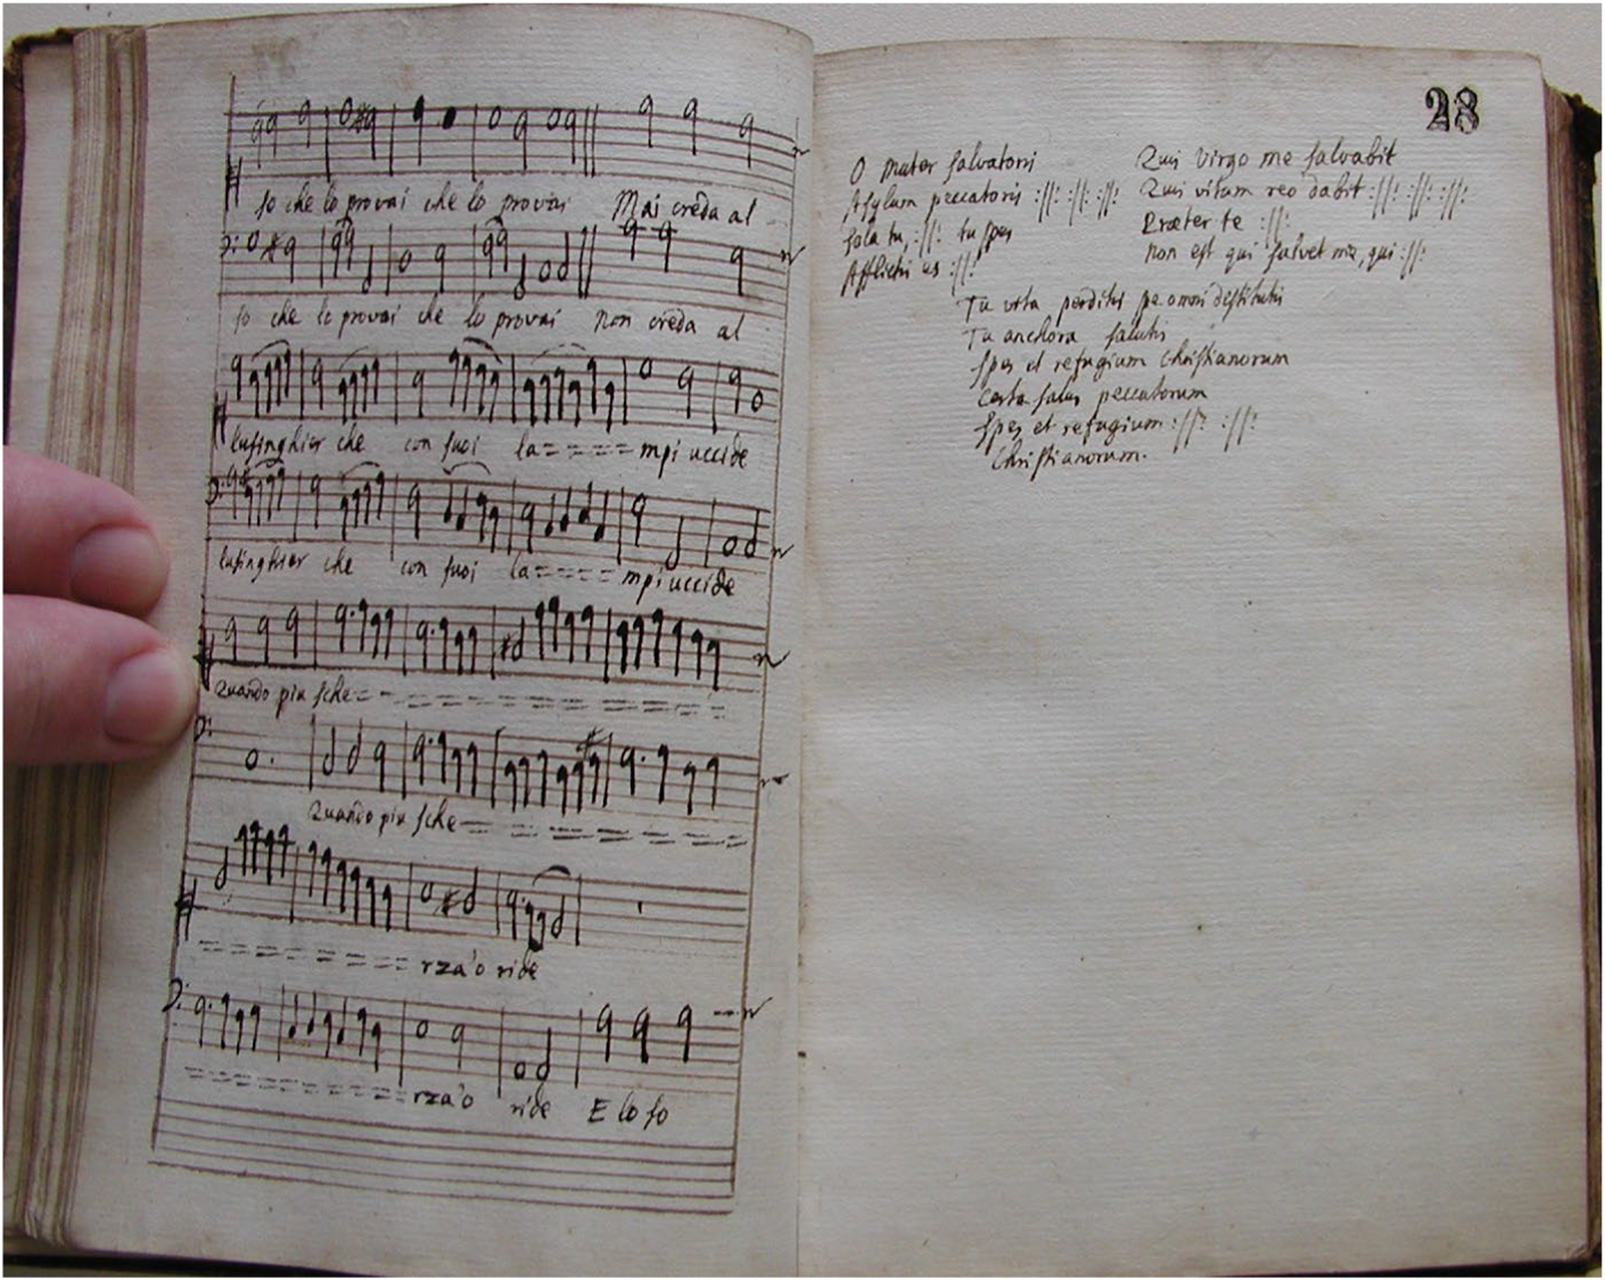 So che lo provai che lo provai Mai creda al
So che lo provai che lo provai non creda al
lusinghier che con suoi la= = = = mpi uccide
lusinghier che con suoi la= = = = mpi uccide
Quando piu sche=
Quando piu sche=
rza'o ride
rza'o ride E lo so
23
O mater salvatoris
Asylum peccatoris :||: :||: :||:
sola tu, :||: tu spes
Afflictis es :||:
Qui virgo me salvabit
Qui vitam reo dabit :||: :||: :||:
Præter te :||:
non est qui salvet me, qui :||:
Tu vita perditis omni
Tu anchora salutis
spes et refugium Christianorum
certa salus peccatorum
spes et refugium :||: :||:
Christianorum.